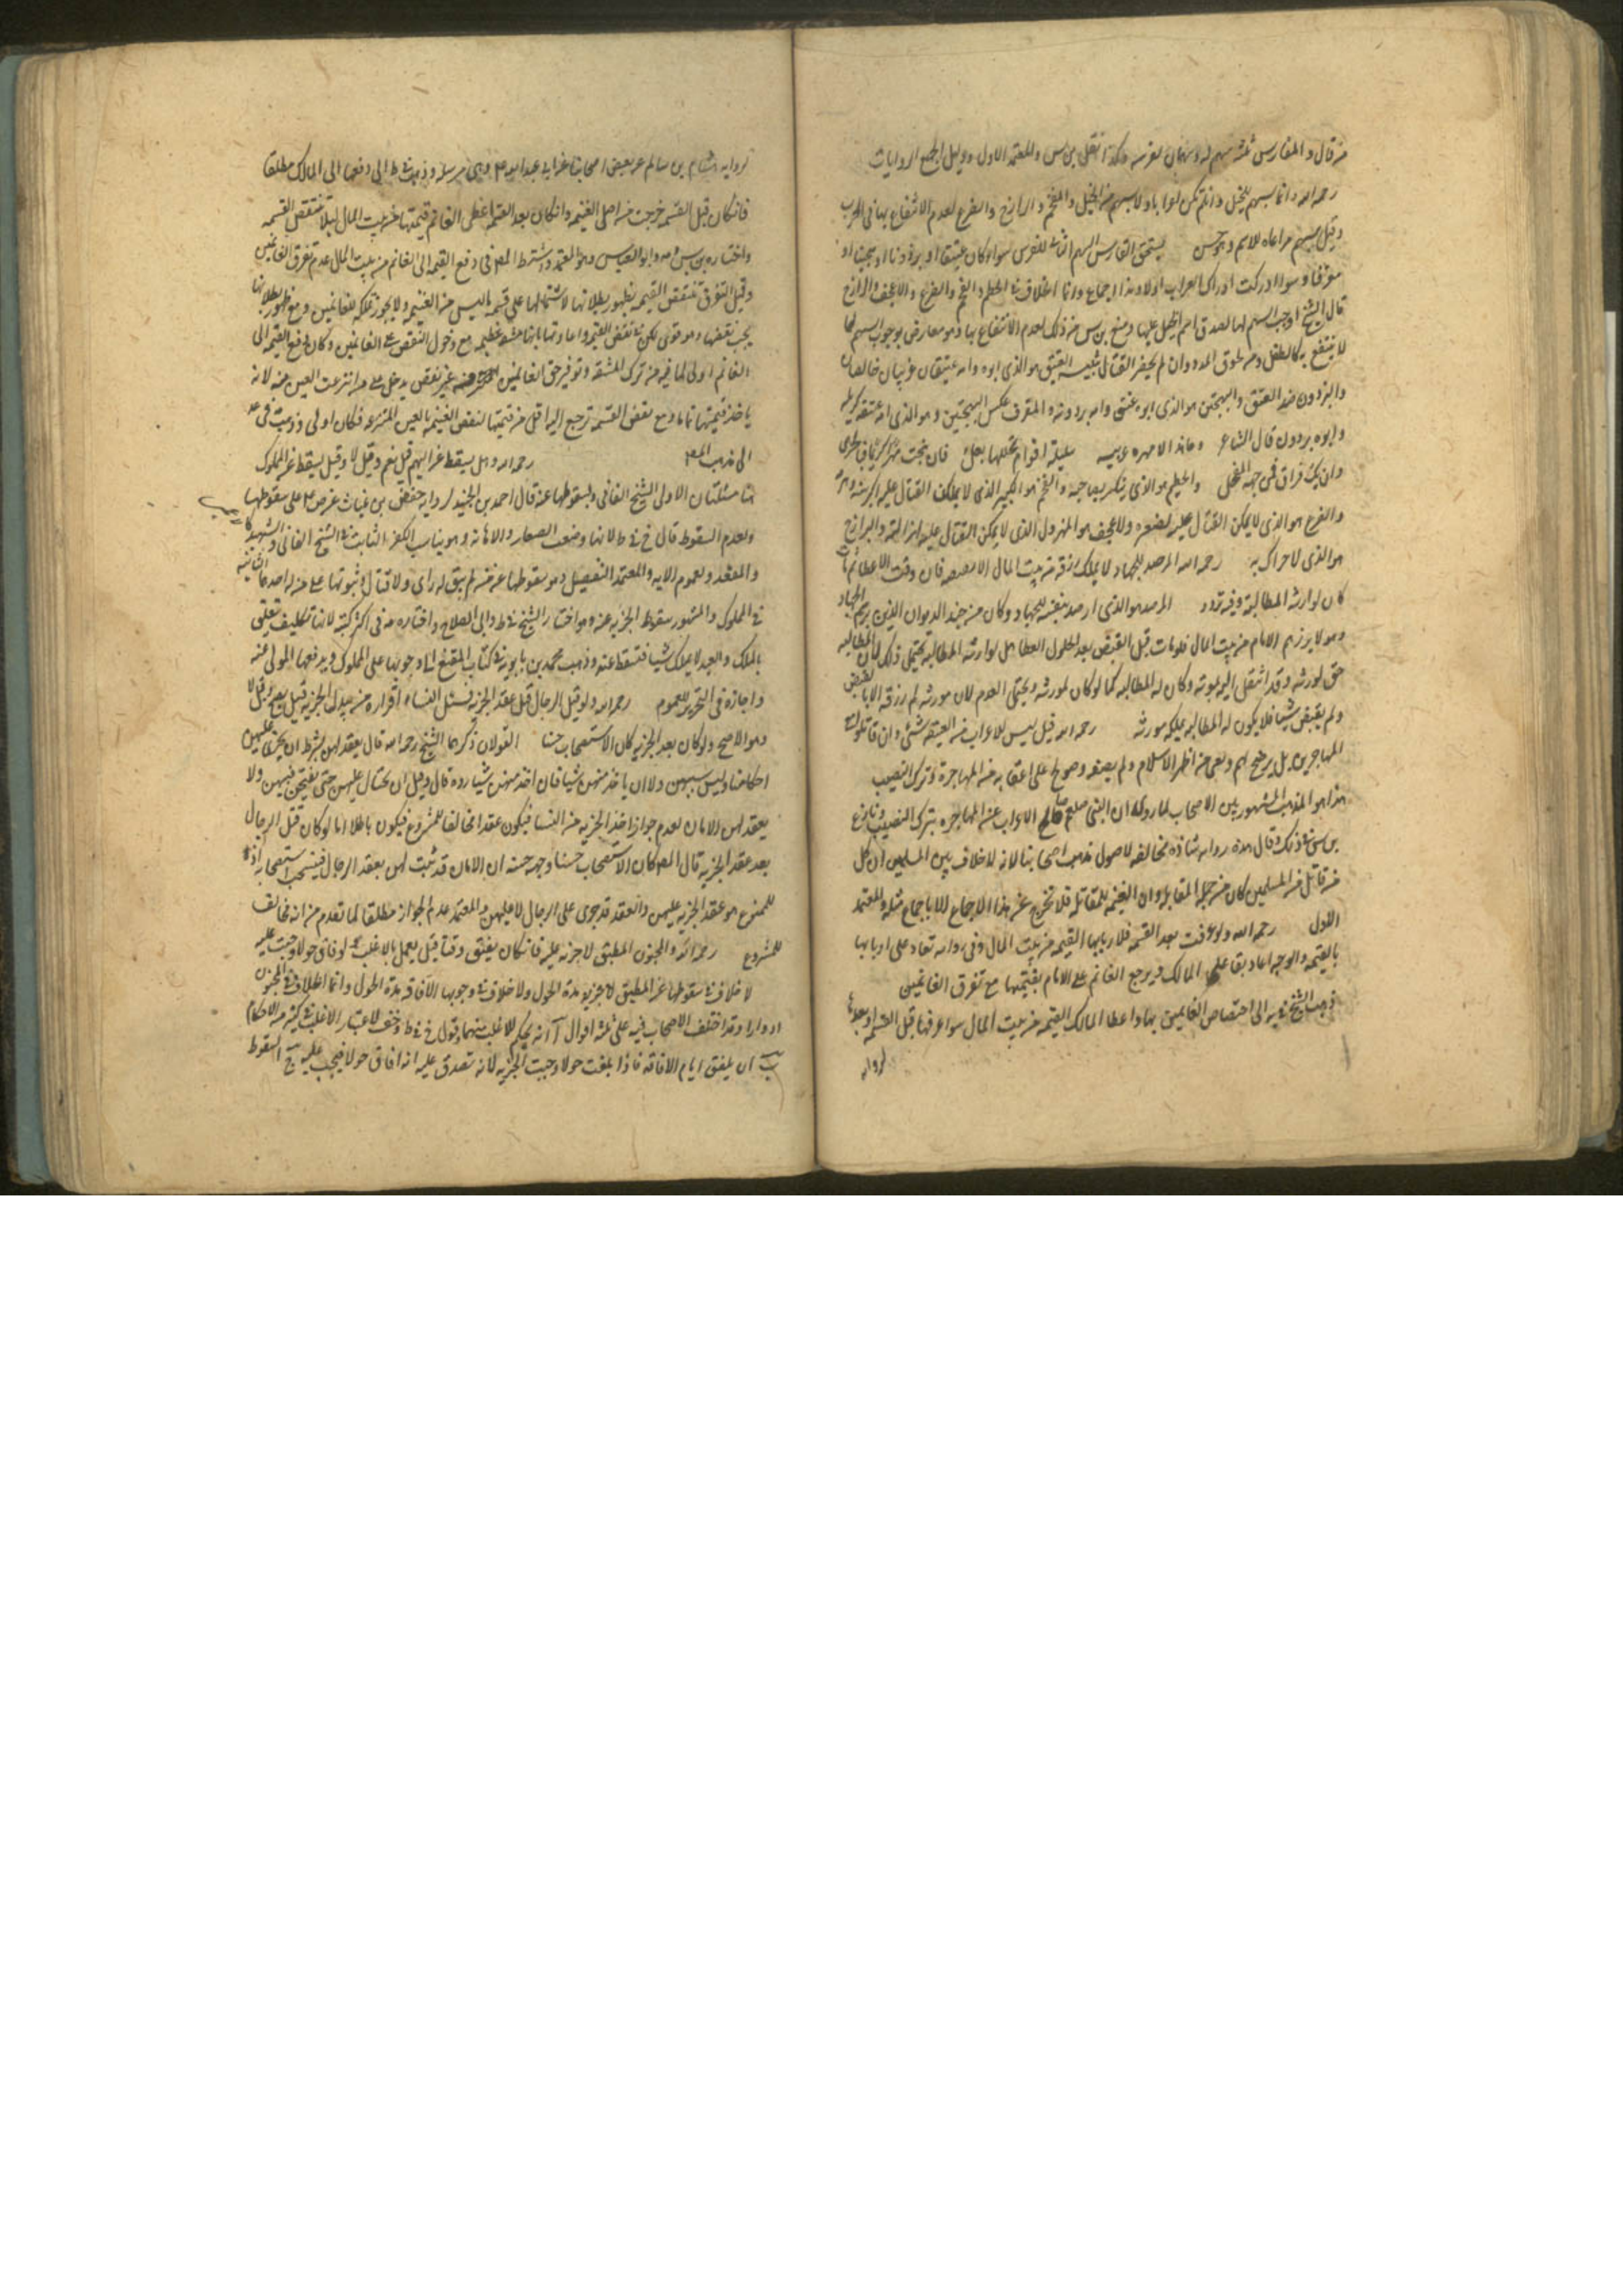 من قال و للفارس ثلثة اسهم له وسهمان لفرسه وكذا نقل بن س والمعتمد الاول ودليل الجميع الروايات
رحمه الله وانما يسهم للخيل وان لم تكن عرابا ولا يسهم من الخيل والقحم والرازح والضرع لعدم الانتفاع بها في الحرب
وقيل يسهم مراعاة للاسم وهو حسن يستحق الفارس السهم الثاني للفرس سواء كان عتيقا او برذونا او هجينا او
مقرفا وسوا ادركت ادراك العراب اولا وهذا اجماع وانما الخلاف في الحطم والقحم والضرع والاعجف والرازح
قال الشيخ اوجب السهم لها لصدق اسم الخيل عليها ومنع بن س من ذلك لعدم الانتفاع بها وهو معارض بوجوب السهم لما
لا ينتفع به كالطفل ومن لحوق المدد وان لم يحضر القتال تنبيه العتيق هو الذي ابوه وامه عتيقان عربيان خالصان
والبرذون ضد العتيق والهجين هو الذي ابوه عتيق وامه برذونه والمقرف عكس الهجين وهو الذي امه عتيقه كريمه
وابوه برذون قال الشاعر وما هند الا مهره عربيه سليلة افراس تجللها بغل فان نتجت مهرا كريما فبالحرى
وان يك اقراف فمن جهة الفحل والحطم هو الذي ينكسر والقحم هو الكبير الذي لا يمكن القتال عليه لكبر سنه وهرمه
والضرع هو الذي لا يمكن القتال عليه لصغره والاعجف هو المهزول الذي لا يمكن القتال عليه لهزاله والرازح
هو الذي لا حراك به رحمه الله المرصد للجهاد لا يملك رزقه من بيت المال الا بقبضه فان وقت العطا ثم مات
كان لوارثه المطالبة وفيه تردد المرصد هو الذي ارصد نفسه للجهاد وكان من جند الديوان الذين برسم الجهاد
وهو لا يرزقهم الامام من بيت المال فلو مات قبل القبض بعد حلول العطا هل لوارثه المطالبه يحتمل ذلك لان المطالبه
حق لمورثه وقد انتقل اليه بموته وكان له المطالبه كما لو كان لمورثه ويحتمل العدم لان مورثه لم يملك رزقه الا بالقبض
ولم يقبض شيئا فلا يكون له المطالبه بملكه مورثه رحمه الله قيل ليس للاعراب من الغنيمه شئ وان قاتلوا مع
المهاجرين بل يرضخ لهم ونعني من اظهر الاسلام ولم يصفه وصولح على اعفائه من المهاجرة وترك النصيب
هذا هو المذهب المشهور بين الاصحاب لما روي ان النبي صلعم صالح الاعراب عن المهاجره بترك النصيب ونازع
بن س في ذلك وقال هذه روايه شاذه مخالفه لاصول مذهب اصحابنا لانه لا خلاف بين المسلمين ان كل
من قاتل من المسلمين كان من جملة المقاتله وان الغنيمه للمقاتله فلا يخرج عن هذا الاجماع الا باجماع مثله والمعتمد
الاول رحمه الله ولو عرفت بعد القسمه فلاربابها القيمه من بيت المال وفي روايه تعاد على اربابها
بالقيمه والوجه اعادتها على المالك ويرجع الغانم على الامام بقيمتها مع تفرق الغانمين
ذهب الشيخ في يه الى اختصاص الغانمين بها واعطا المالك القيمه من بيت المال سوا عرفها قبل القسمه او بعدها
لروايه
لروايه هشام بن سالم عن بعض اصحابنا عن ابي عبدالله ع وهي مرسله وذهب في ط الى دفعها الى المالك مطلقا
فان كان قبل القسمه خرجت من اصل الغنيمه وان كان بعد القسمه اعطى الغانم قيمتها من بيت المال ليلا تنتقض القسمه
واختاره بن س وابو العباس وهو المعتمد واشترط المص في دفع القيمه الى الغانم من بيت المال عدم تفرق الغانمين
وقبل التفرق تنتقض القسمه بظهور بطلانها لاشتمالها على قسمة ما ليس من الغنيمه ولا يجوز تملكه للغانمين ومع ظهور بطلانها
يجب نقضها وهو قوي لكن في نقض القسمه واعادتها ثانيا مشقه عظيمه مع دخول النقص على الغانمين وكان دفع القيمه الى
الغانم اولى لما فيه من ترك المشقه وتوفير حق الغانمين من غير نقص يدخل على من انتزعت العين منه لانه
ياخذ قيمتها تاما ومع نقض القسمه ترجع اليه اقل من قيمتها لنقص الغنيمه بالعين المنتزعه فكان اولى وذهبت في عد
الى مذهب المص رحمه الله وهل يسقط عن الهم قيل نعم وقيل لا وقيل يسقط عن المملوك
هنا مسئلتان الاولى الشيخ الفاني وبسقوطها عنه قال احمد بن الجنيد لروايه حفص بن غياث عن ص ع على سقوطها
وبعدم السقوط قال خ في ط لانها وضعت للصغار والاهانه وهو يناسب الكفر الثابت في الشيخ الفاني
والمقعد ولعموم الايه والمعتمد التفصيل وهو سقوطها عن من لم يبق له راي ولا قتال وثبوتها على من له احدهما الثانيه
في المملوك والمشهور سقوط الجزيه عنه وهو اختيار الشيخ في ط وابي الصلاح واختاره في اكثر كتبه لانها تكليف تتعلق
بالملك والعبد لا يملك شيئا فتسقط عنه وذهب محمد بن بابويه في كتاب المقنع الى وجوبها على المملوك ويدفعها المولى عنه
واجازه في التحرير للعموم رحمه الله ولو قتل الرجال قبل عقد الجزيه فسئل النساء اقرارهن ببذل الجزيه قيل يصح وقيل لا
وهو الاصح ولو كان بعد الجزيه كان الاستصحاب حسنا القولان ذكرهما الشيخ رحمه الله قال يعقد لهن بشرط ان يجري عليهن
احكامنا وليس سبيهن ولا ان ياخذ منهن شيئا فان اخذ منهن شيئا رده قال وقيل ان يحتال عليهن حتى يفتحن فيسبين ولا
يعقد لهن الامان لعدم جواز اخذ الجزيه من النسا فيكون عقدا مخالفا للمشروع فيكون باطلا اما لو كان قتل الرجال
بعد عقد الجزيه قال المص كان الاستصحاب حسنا وجه حسنه ان الامان قد ثبت لهن بعقد الرجال فيستحب استصحابه اذ
الممنوع هو عقد الجزيه عليهن والعقد قد جرى على الرجال لا عليهن والمعتمد عدم الجواز مطلقا لما تقدم من انه مخالف
للمشروع رحمه الله والمجنون المطبق لا جزيه عليه فان كان يفيق وقتا قيل يعمل بالاغلب ولو افاق حولا وجبت عليه
لا خلاف في سقوطها عن المطبق مدة الحول ولا خلاف في وجوبها الافاقه مدة الحول وانما الخلاف في المجنون
ادوارا وقد اختلف الاصحاب فيه على ثلثة اقوال آ انه يحكم للاغلب منهما وهو قول خ في ط لاعتبار الاغلب في كثير من الاحكام
ب ان يلفق ايام الافاقه فاذا بلغت حولا وجبت الجزيه لانه تصدق عليه انه افاق حولا فيجب عليه ج السقوط